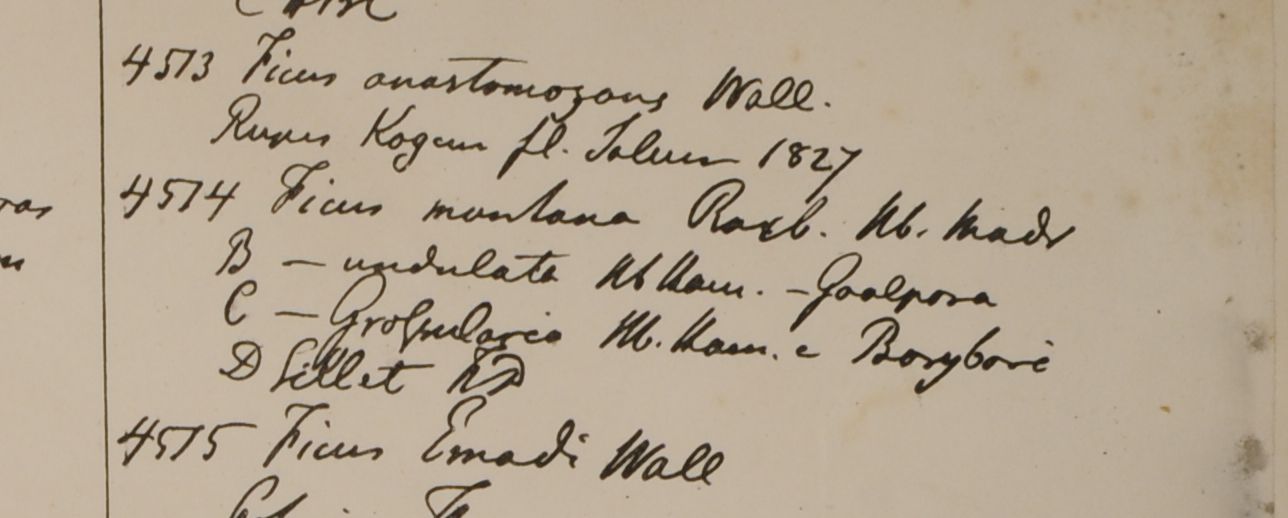 4513 Ficus anastomozans Wall.
Rupes Kogun fl. Saluen 1827
4514 Ficus montana Roxb. Hb. Madr
B — undulata Hb Ham. – Goalpora
C — Grossularia Hb. Ham. e
D Sillet
4515 Ficus Emadi Wall